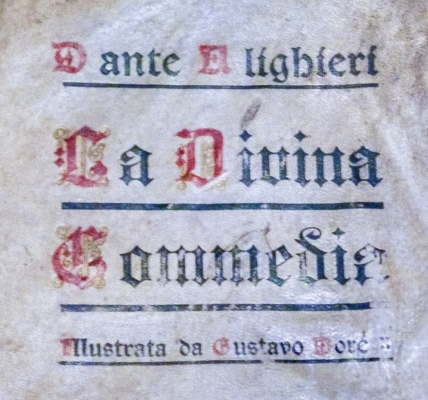 Dante Alighieri
La Divina
Commedia
Illustrata da Gustavo Doré